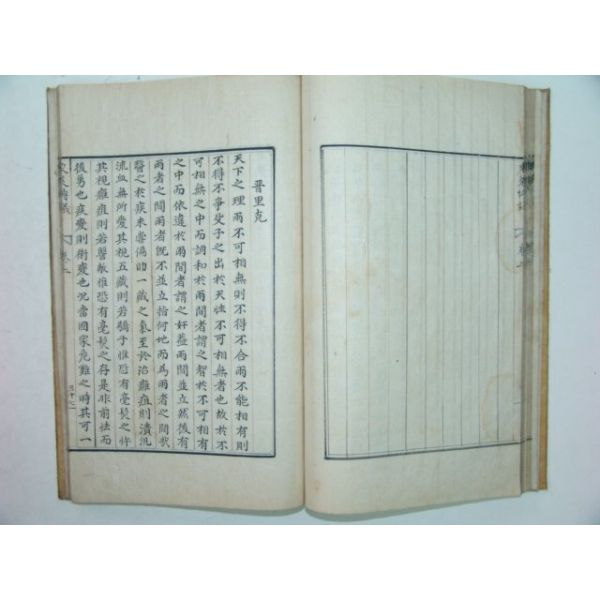 晉里克
天下之理兩不可相無則不得不合兩不能相有則
不得不爭父子之出於天性不可相無者也故於不
可相無之中而調和於兩間者謂之智於不可相有
之中而依違於兩間者謂之奸蓋兩間並立然後有
兩者之間兩者旣不並立指何地而為兩者之間哉
醫之於疾未嘗偏助一藏之氣至於治癰疽則潰
流血無所愛其視五藏則若驕子惟恐有毫髮之
其視癰疽則若讐敵惟恐有毫髮之存是非前怯而
後勇也疾變則術變也況當國家危難之時其可一
卷二
三十七